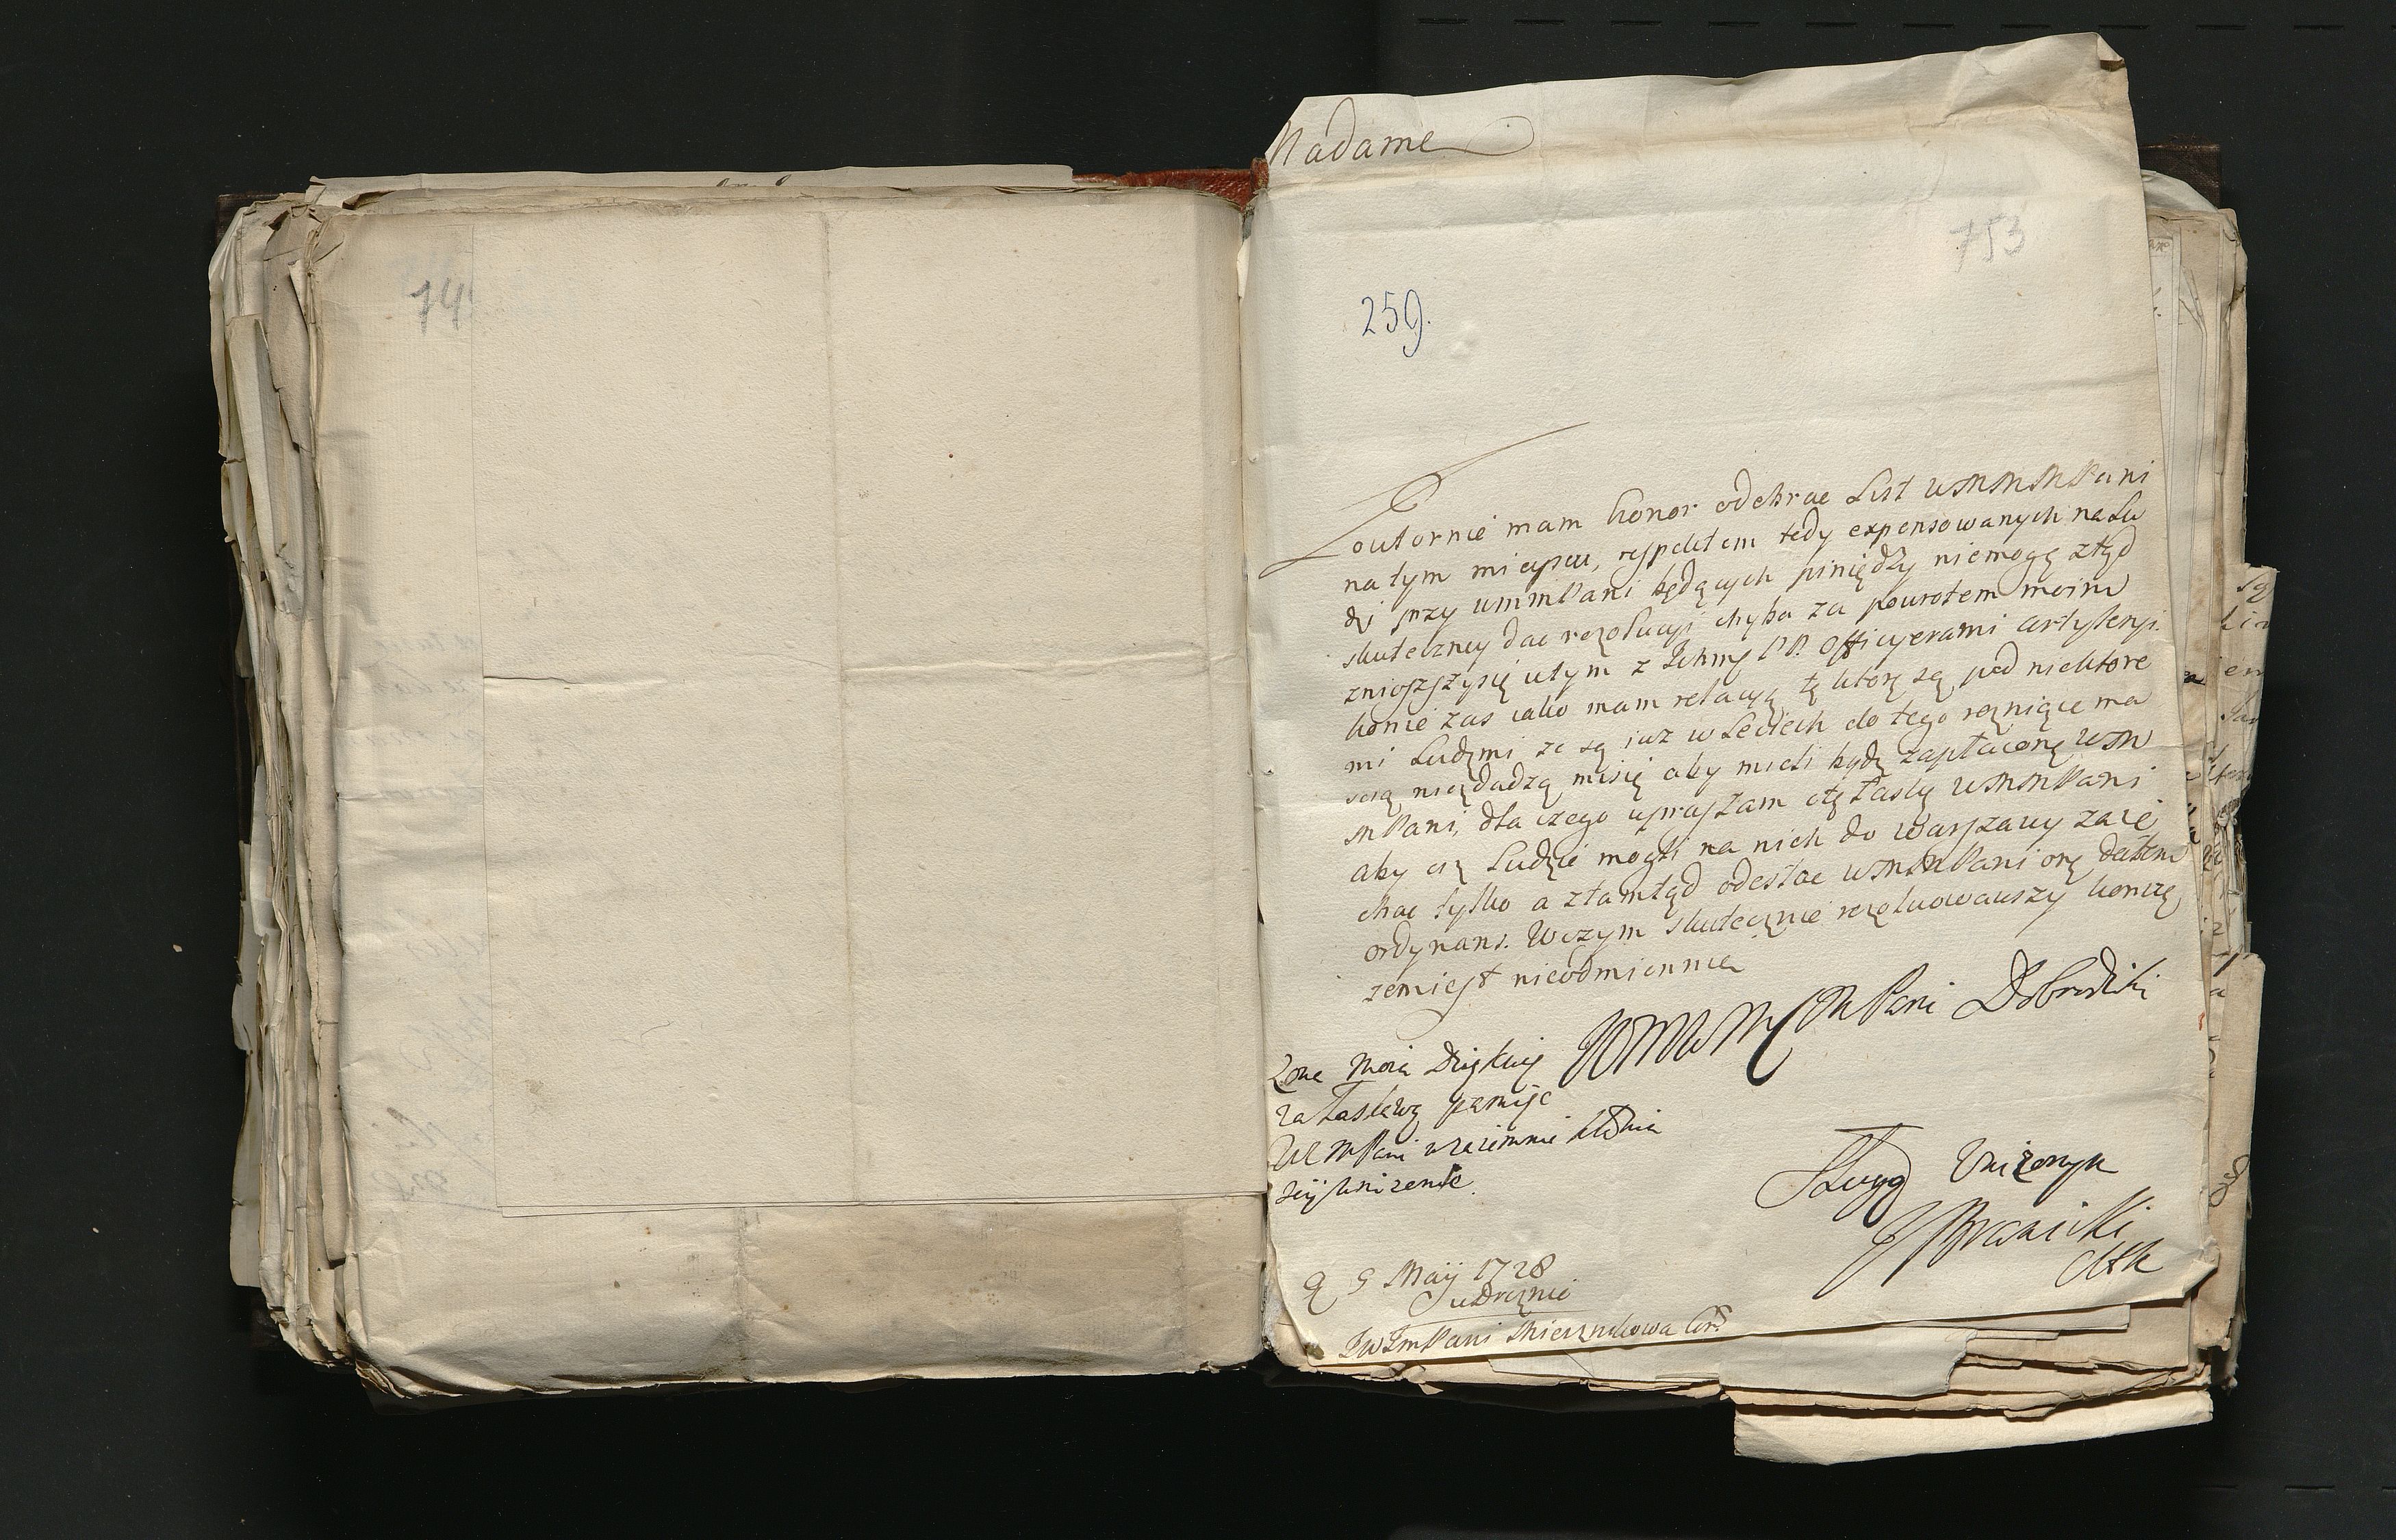 741
Madame
753
259.
Poutornie mam honor odebrac List WMMMPani
na tym mieyscu, respektem tedy expensowanych na Lu
dzi przy WMMPani będących piniędzy niemogę ztąd
skuteczney dac rezolucyi chyba za powrotem moim
znioszszysię wtym z Ichmę PP. Officyerami artyleryi
konie zas iako mam relacyą, tę ktorę są pod niektore
mi Ludzmi ze są iuz w Leciech do tego reznięcie ma
iącę niezdadzą misię aby mieli bydz zapłaconę WM
MPani, dla czego upraszam otę łaskę WMMPani
aby cię Ludzie mogli na nich do Warszawy zaie
chac tylko a ztamtąd odesłac WMMPani orę dałem
ordynans. Wczym skutecznie rezolwowawszy koncze
zemiest nieodmiennie
WMMMMPani Dobrodziki
Zona Moia Dziękuie
za łaskawą pamięc
WMMPani wzaiemnie kłania
seij unizenie
Sługą Unizonym
J Branicki
d 9 Maij 1728
w Drężnie
JwJmPani Miecznikowa Kor: